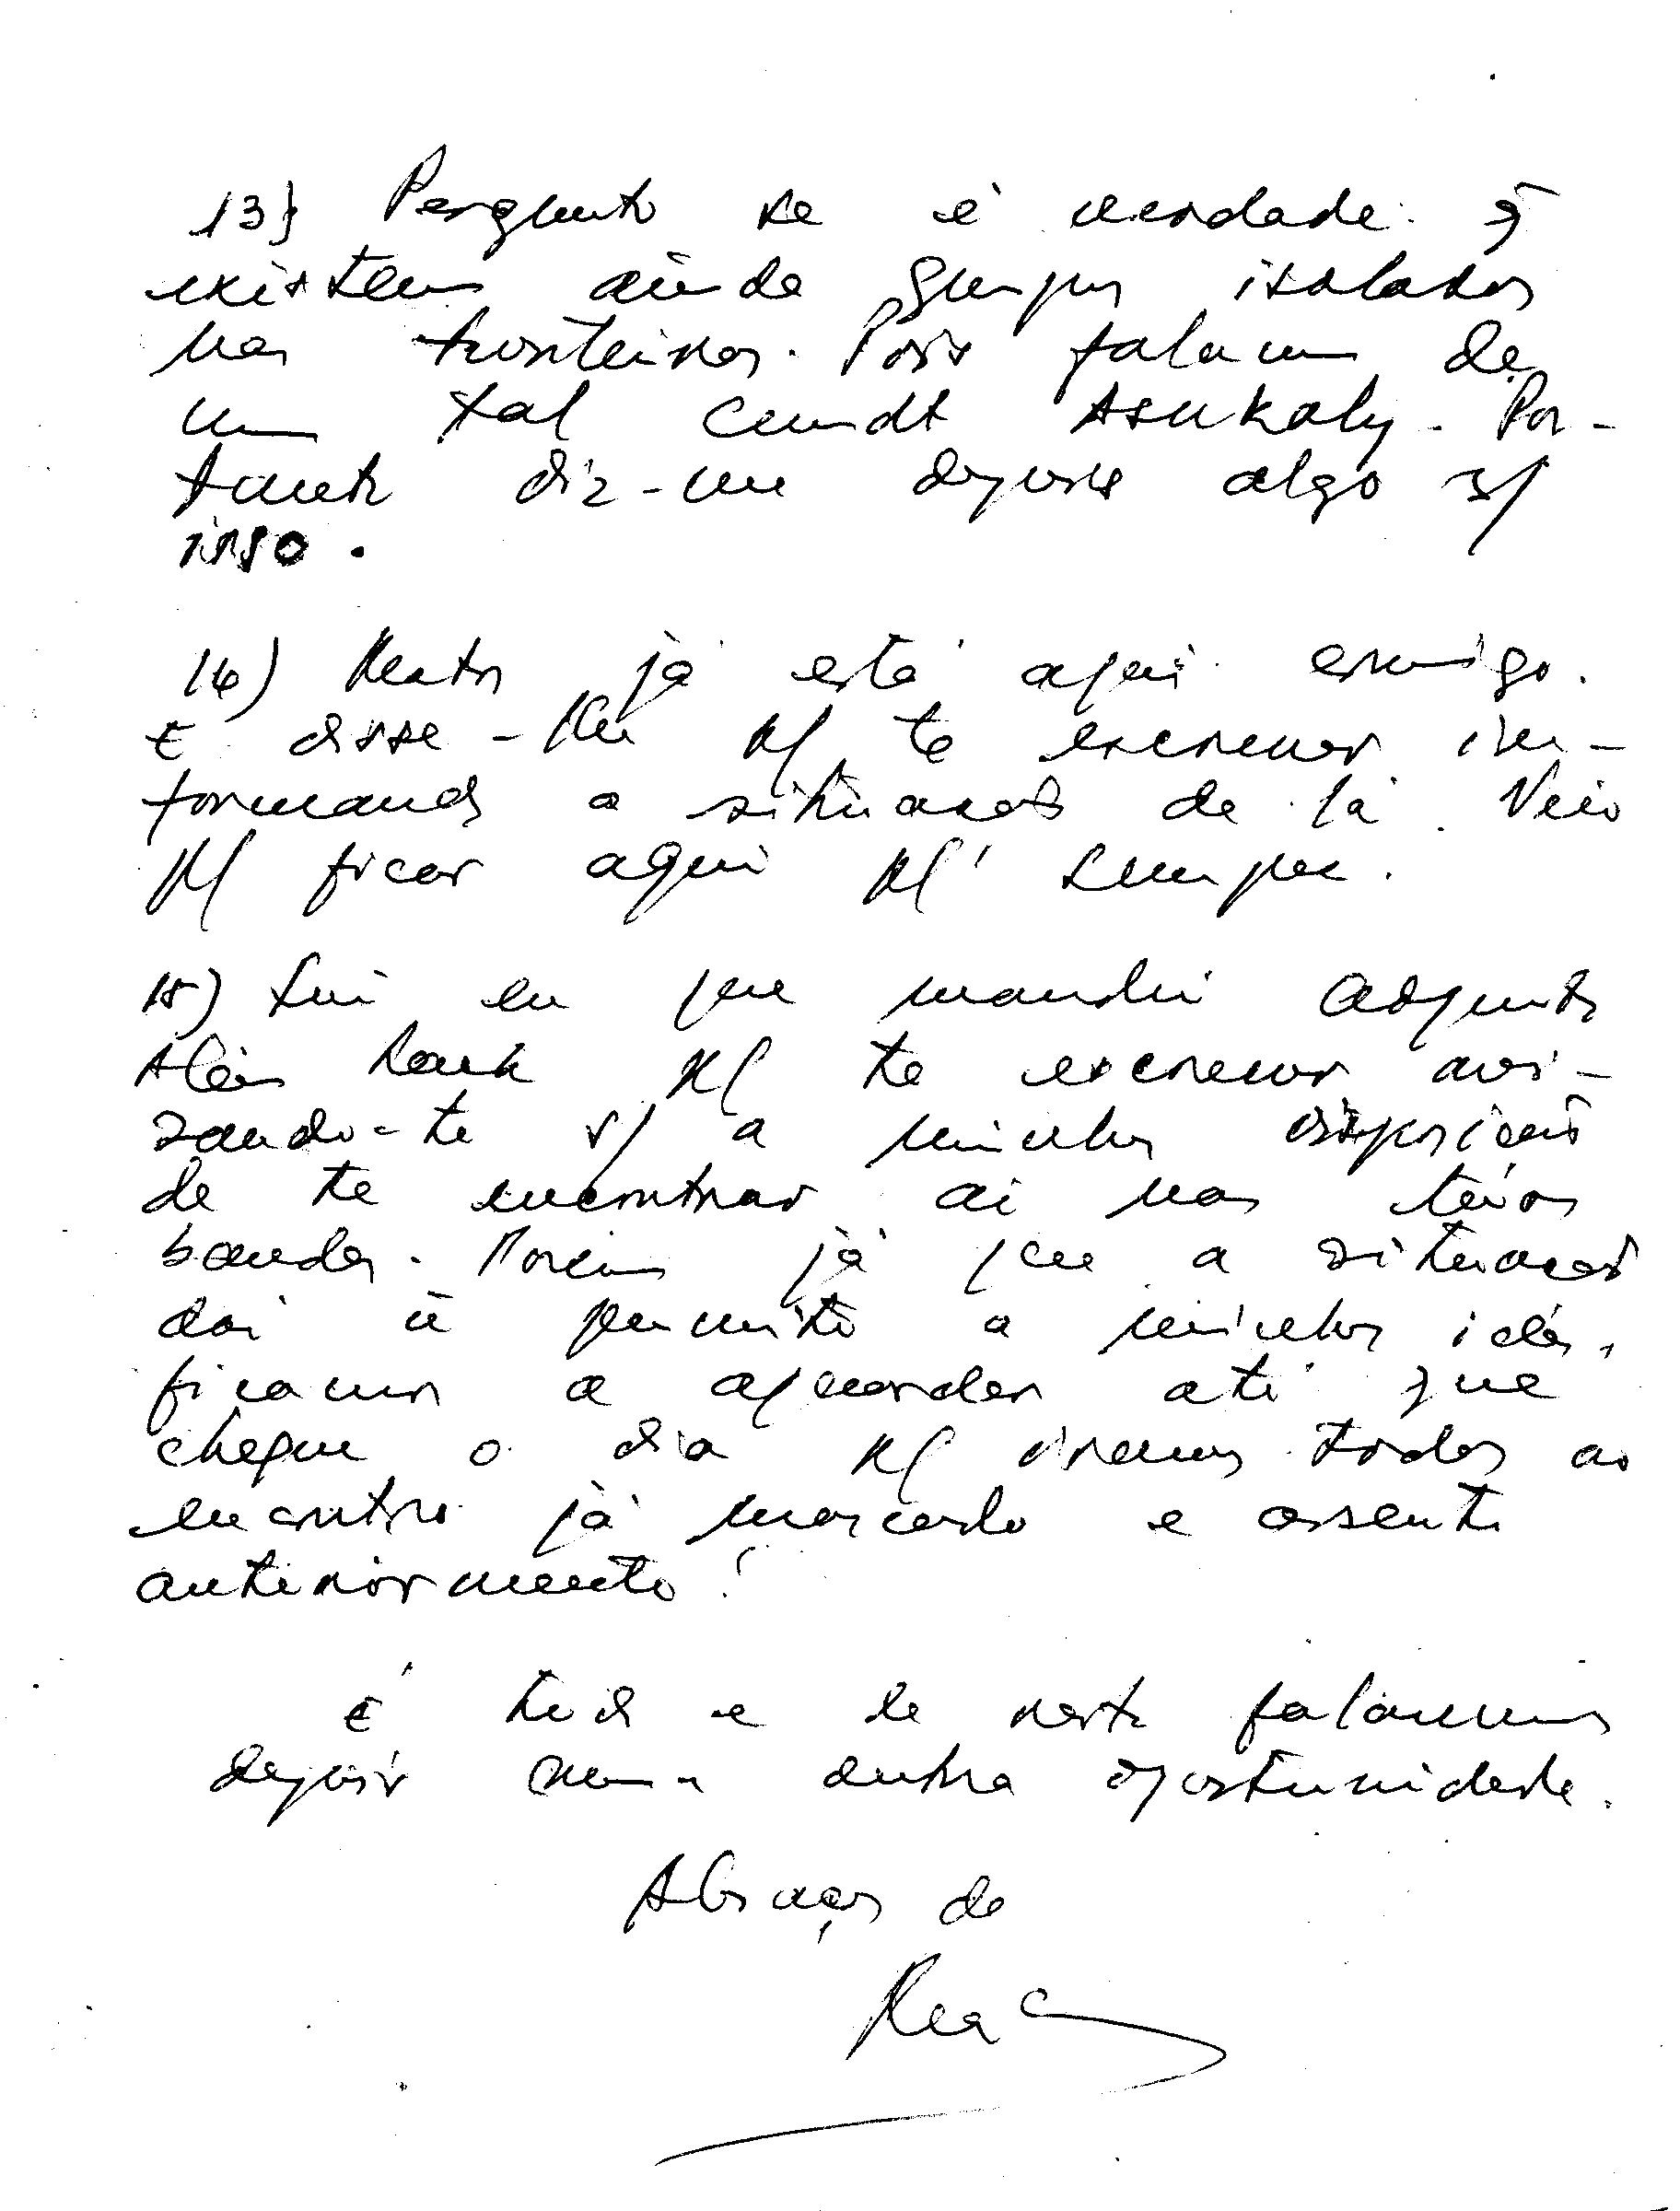 13) Pergunto se é verdade q̃
existem ainda grupos isolados
nas fronteiras. Pois falam de
um tal Cmdt Asukaly. Por-
tanto diz-me depois algo s/
isso.
14) já está aqui comigo.
E disse-lhe p/ te escrever in-
formando a situação de lá. Veio
p/ ficar aqui p/ sempre.
15) Fui eu que mandei
p/ te escrever avi-
sando-te s/ a minha disposição
de te encontrar aí nas tuas
bandas. Porém já que a situação
daí ñ permite a minha ida,
ficamos a aguardar até que
chegue o dia p/ irmos todos ao
encontro já marcado e assente
anteriormente!
É tudo e de resto falaremos
depois numa outra oportunidade.
Abraços de